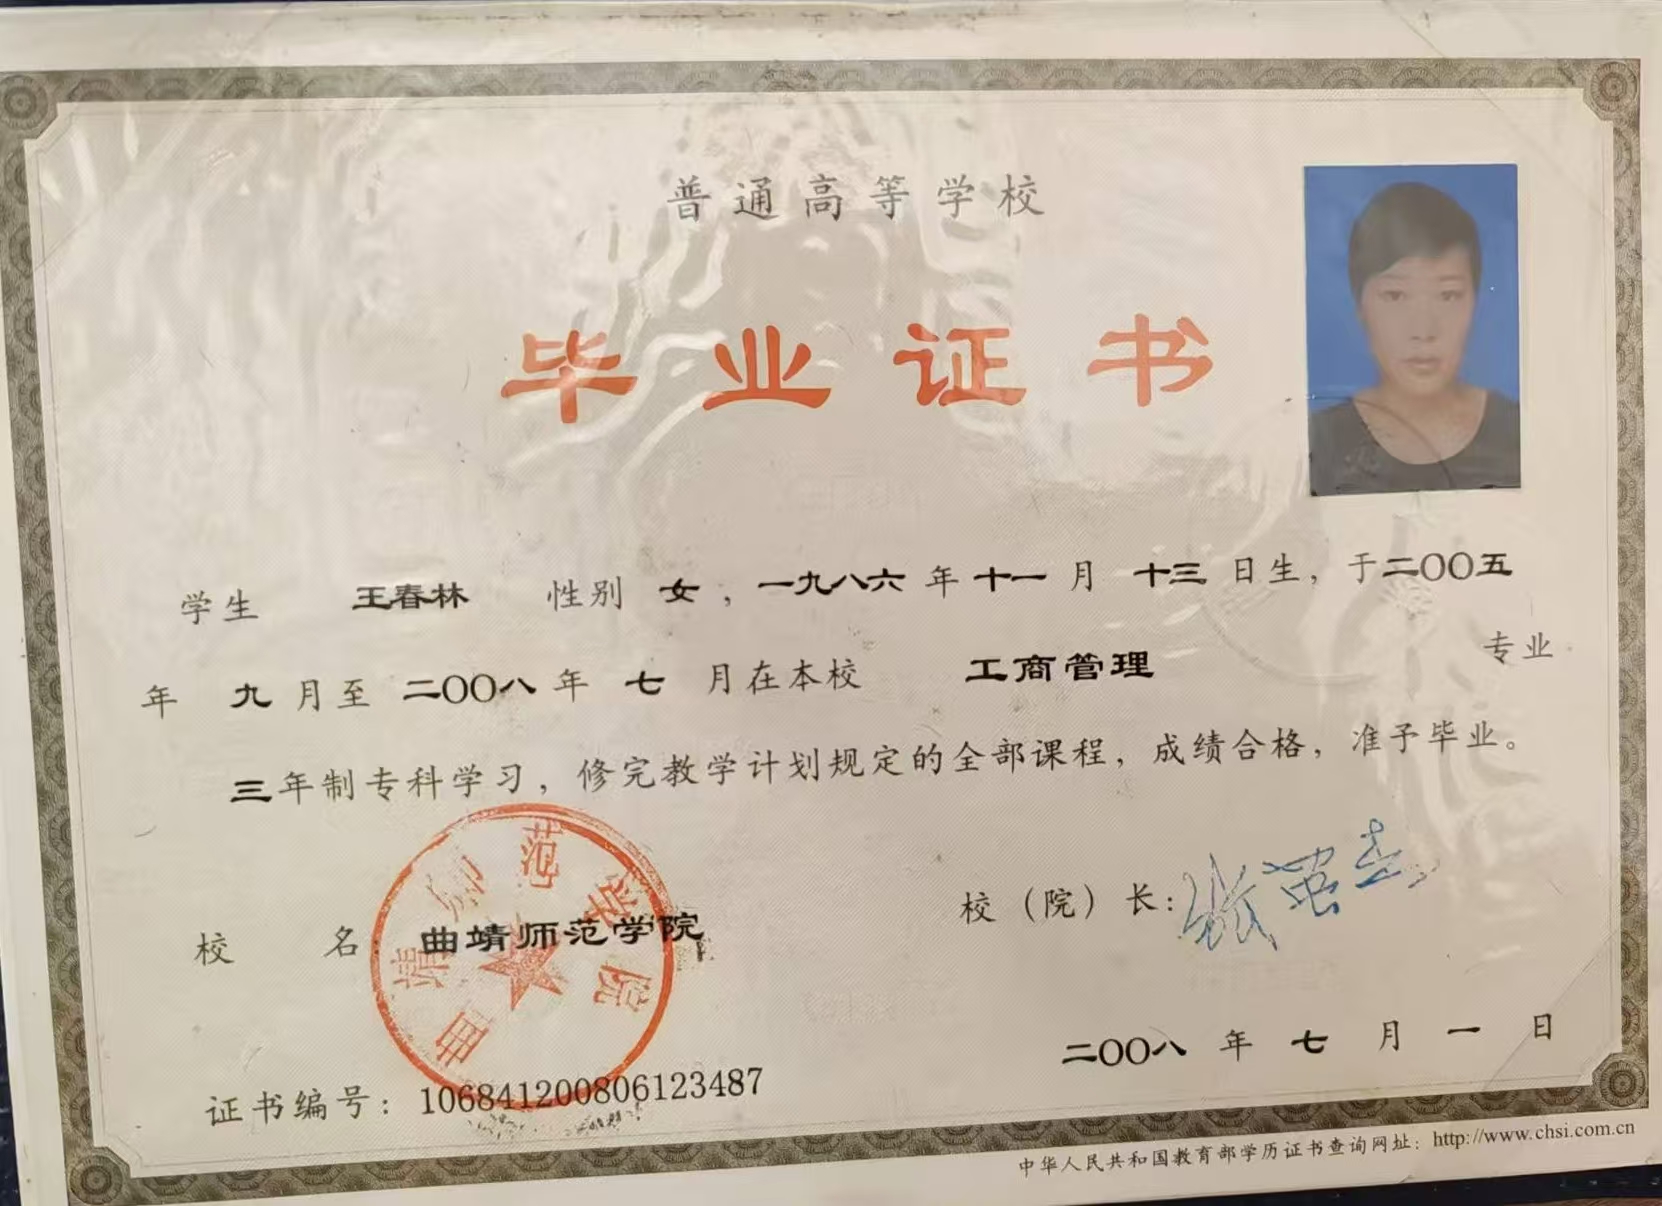 普通高等学校
毕业证书
学生 王春林 性别 女，一九八六年十一月十三日生，于二〇〇五
年九月至二〇〇八年七月在本校 工商管理 专业
三年制专科学习，修完教学计划规定的全部课程，成绩合格，准予毕业。
曲靖师范学院
校 名：曲靖师范学院
校（院）长：
二〇〇八年七月一日
证书编号：106841200806123487
中华人民共和国教育部学历证书查询网址：http://www.chsi.com.cn